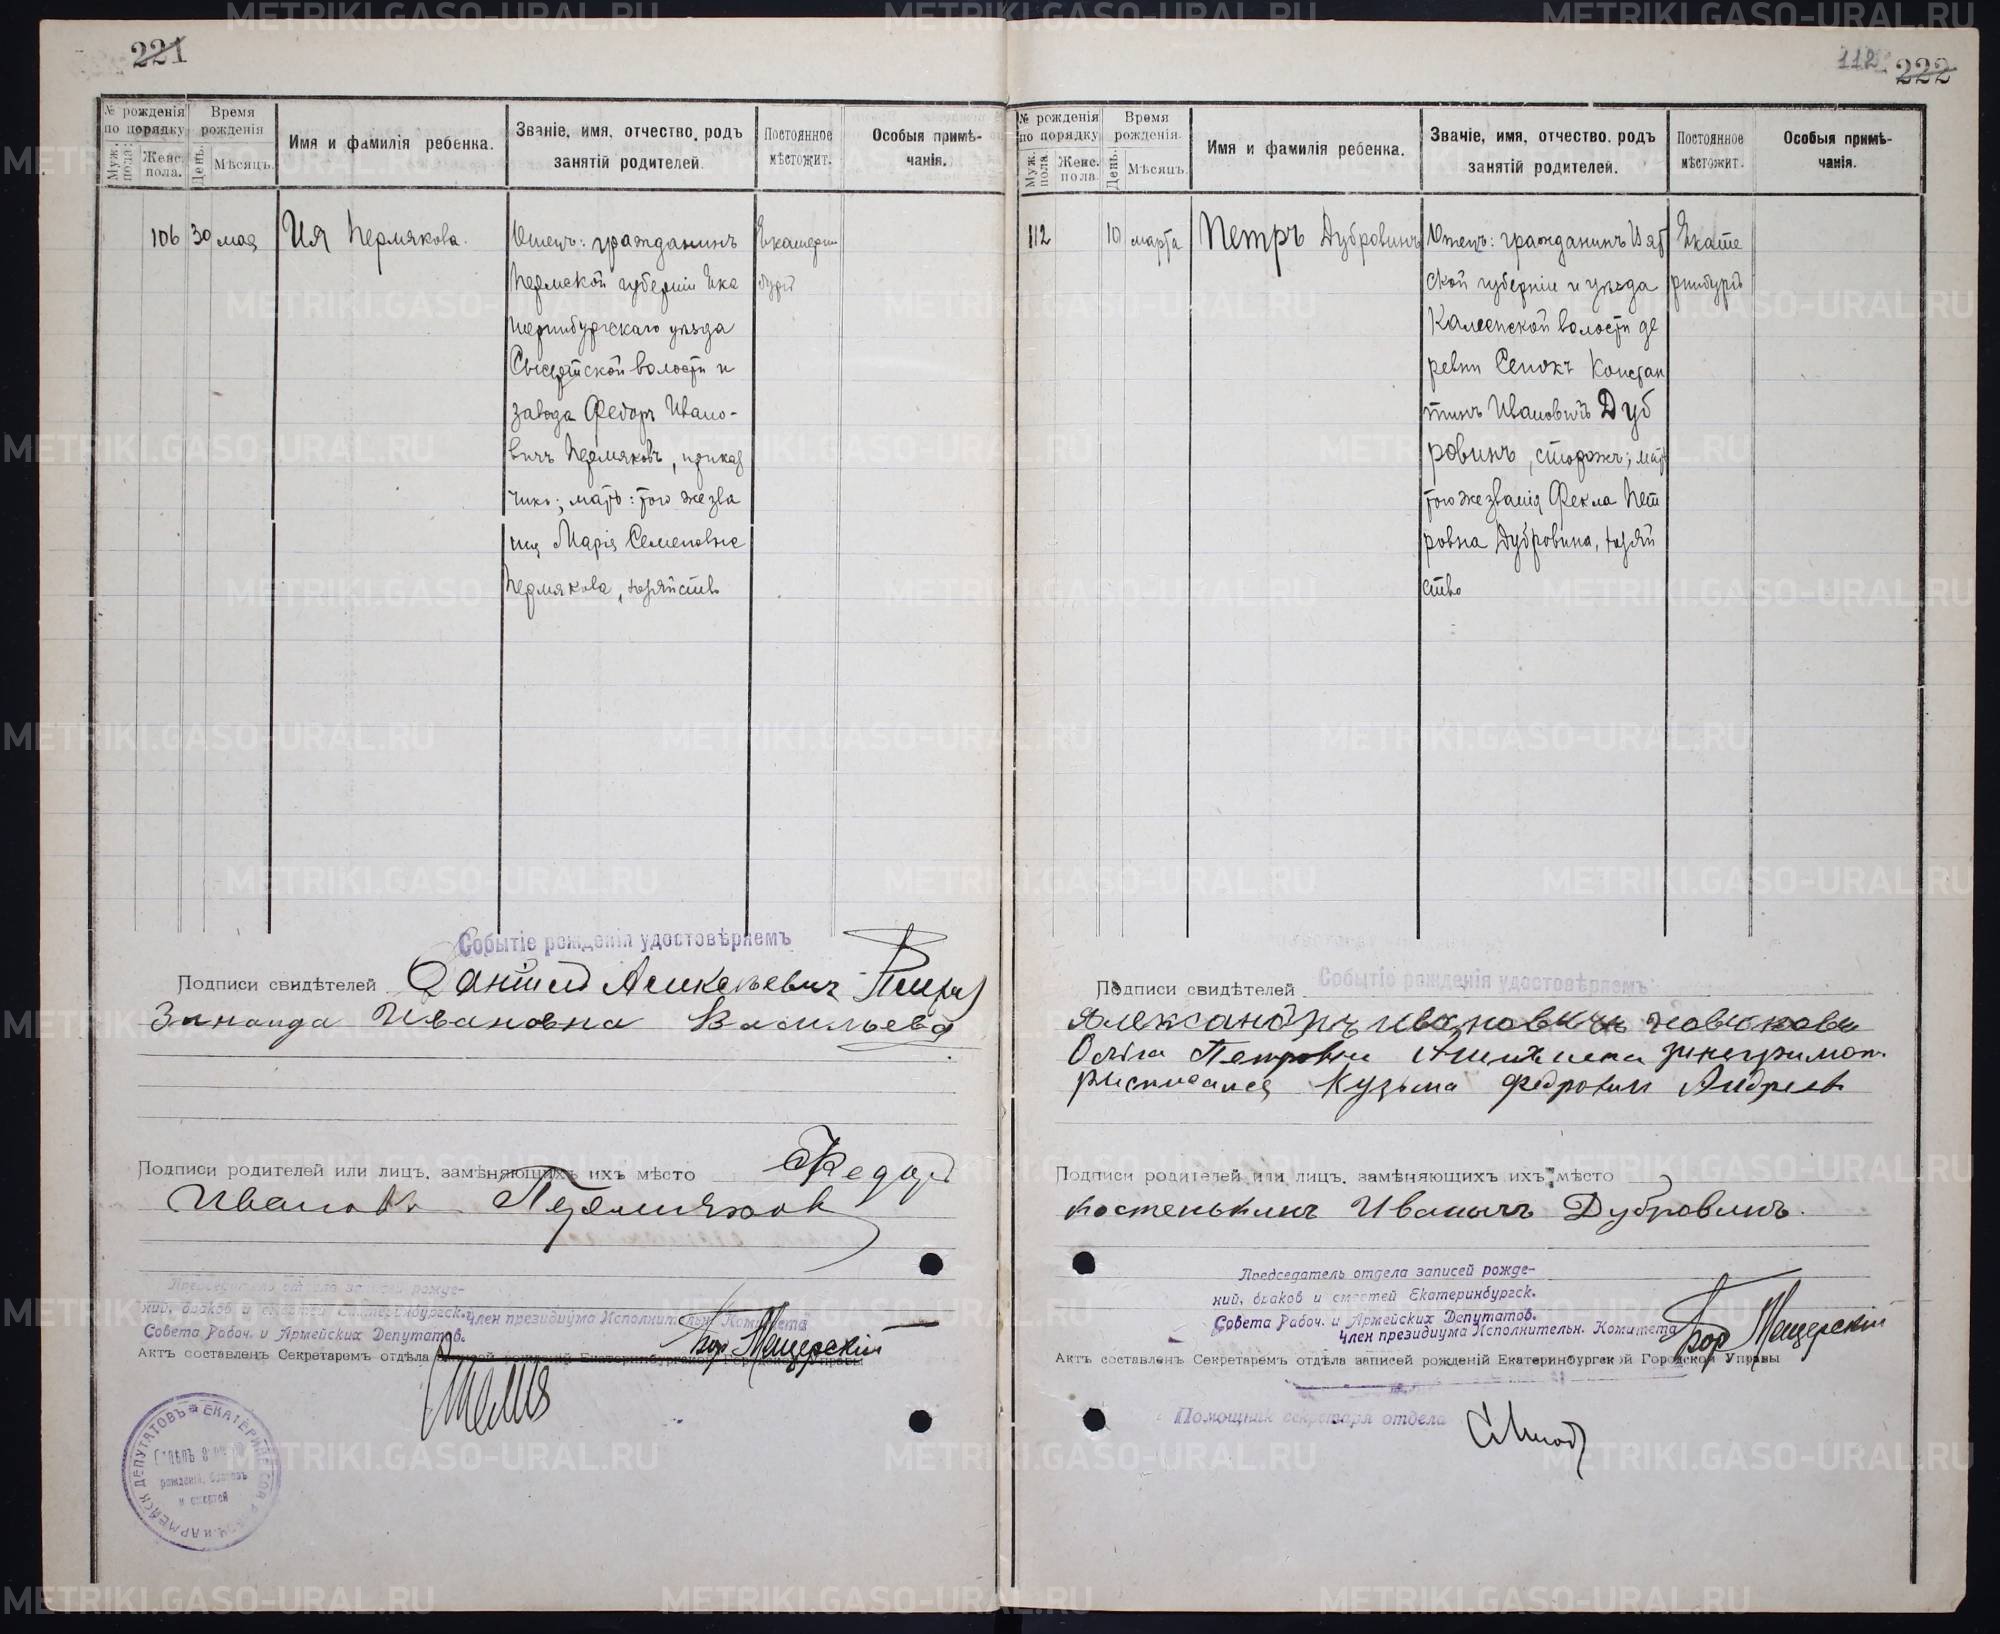 221
№ рожденія по порядку
Муж. пола.
Женс. пола.
Время рожденія
День.
Мѣсяцъ.
Имя и фамилія ребенка.
Званіе, имя, отчество, родъ занятій родителей.
Постоянное мѣстожит.
Особыя примѣчанія.
106 30 мая Ия Пермякова.
Отецъ: гражданинъ
Пермской губерніи Ека
теринбургскаго уѣзда
Сысертской волости и
завода Федоръ Ивано-
вичъ Пермяковъ, приказ
чикъ; мать: того же зва
нія Марія Семеновна
Пермякова, хозяйство
Екатерин
бургъ
Событіе рожденія удостовѣряемъ
Подписи свидѣтелей
Зинаида Ивановна Васильева
Подписи родителей или лицъ, замѣняющихъ ихъ мѣсто Федоръ
Пермяков
Председатель отдела записей рожде-
ний, браков и смертей Екатеринбургск.
Совета Рабоч. и Армейских Депутатов.
Член президиума Исполнительн. Комитета
Бор Мещерскій
Актъ составленъ Секретаремъ отдѣла записей рожденій Екатеринбургской Городской Управы
112 222
№ рожденія по порядку
Муж. пола.
Женс. пола
Время рожденія.
День.
Мѣсяцъ.
Имя и фамилія ребенка.
Званіе, имя, отчество, родъ занятій родителей.
Постоянное мѣстожит.
Особыя примѣчанія.
112 10 марта Петръ Дубровинъ
Отецъ: гражданинъ Вят
ской губерніи и уѣзда
волости де
ревни Сенокъ Констан
тинъ Ивановичъ Дуб
ровинъ, сторожъ; мать
того же званія Фекла Пет
ровна Дубровина, хозяй
ство
Екате
ринбургъ
Событіе рожденія удостовѣряемъ
Подписи свидѣтелей
Александръ Ивановичъ
Петровна
Кузьма Андреев
Подписи родителей или лицъ, замѣняющихъ ихъ мѣсто
костенькинъ Иванычъ Дубровинъ.
Председатель отдела записей рожде-
ний, браков и смертей Екатеринбургск.
Совета Рабоч. и Армейских Депутатов.
Член президиума Исполнительн. Комитета
Бор Мещерскій
Актъ составленъ Секретаремъ отдѣла записей рожденій Екатеринбургской Городской Управы
Помощник секретаря отдела
METRIKI.GASO-URAL.RU